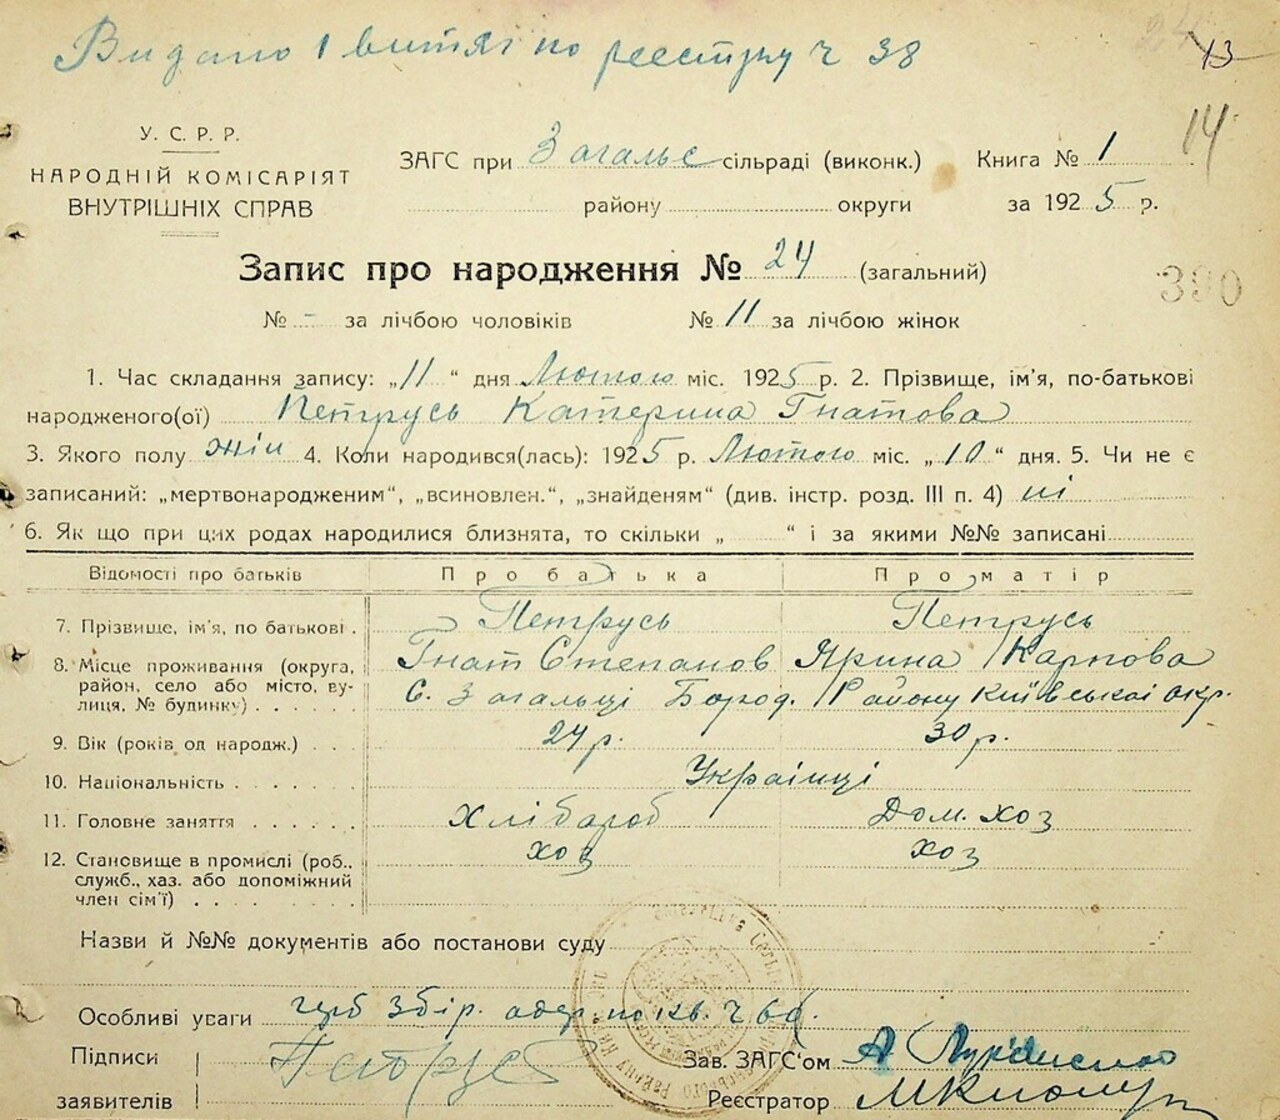 Видано 1 витяг по реєстру ч 38
13
14
У. С. Р. Р.
НАРОДНІЙ КОМІСАРІЯТ
ВНУТРІШНІХ СПРАВ
ЗАГС при Загальс сільраді (виконк.) Книга № 1
району округи за 1925 р.
Запис про народження № 24 (загальний)
390
№ - за лічбою чоловіків № 11 за лічбою жінок
1. Час складання запису: „11“ дня Лютого міс. 1925 р. 2. Прізвище, ім'я, по-батькові
народженого(ої) Петрусь Катерина Гнатова
3. Якого полу жін 4. Коли народився(лась): 1925 р. Лютого міс. „10“ дня. 5. Чи не є
записаний: „мертвонародженим“, „всиновлен.“, „знайденям“ (див. інстр. розд. III п. 4) ні
6. Як що при цих родах народилися близнята, то скільки „ “ і за якими №№ записані
Відомості про батьків Про батька Про матір
7. Прізвище, ім'я, по батькові . Петрусь Петрусь
Гнат Степанов Ярина Карпова
8. Місце проживання (округа, район, село або місто, вулиця, № будинку) С. Загальці Бород. Району Київської окр.
9. Вік (років од народж.) . . . 24 р. 30 р.
10. Національність . . . . . . Українці
11. Головне заняття . . . . . . Хлібороб Дом. хоз
12. Становище в промислі (роб., служб., хаз. або допоміжний член сім'ї) хоз хоз
Назви й №№ документів або постанови суду
Особливі уваги збір. по кв. ч 66
Підписи
заявителів Петрусь
Зав. ЗАГС'ом
Реєстратор